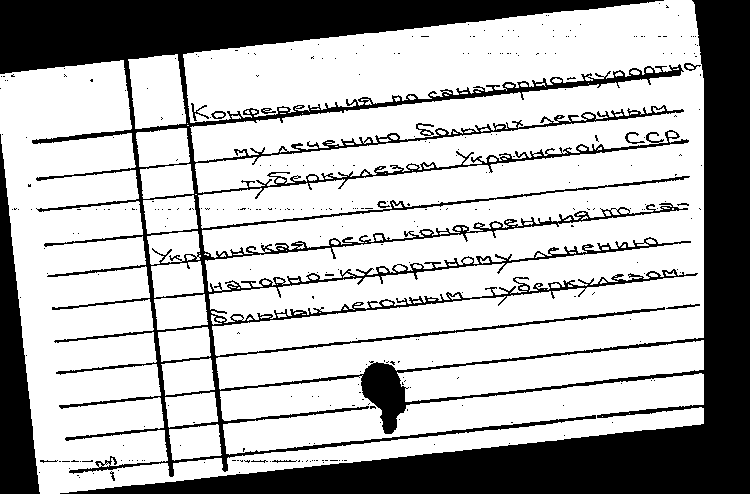 Конференция по санаторно-курортно
му лечению больных легочным
туберкулезом Украинской ССР
см.
Украинская респ. конференция по са-
наторно-курортному лечению
больных легочным туберкулезом.